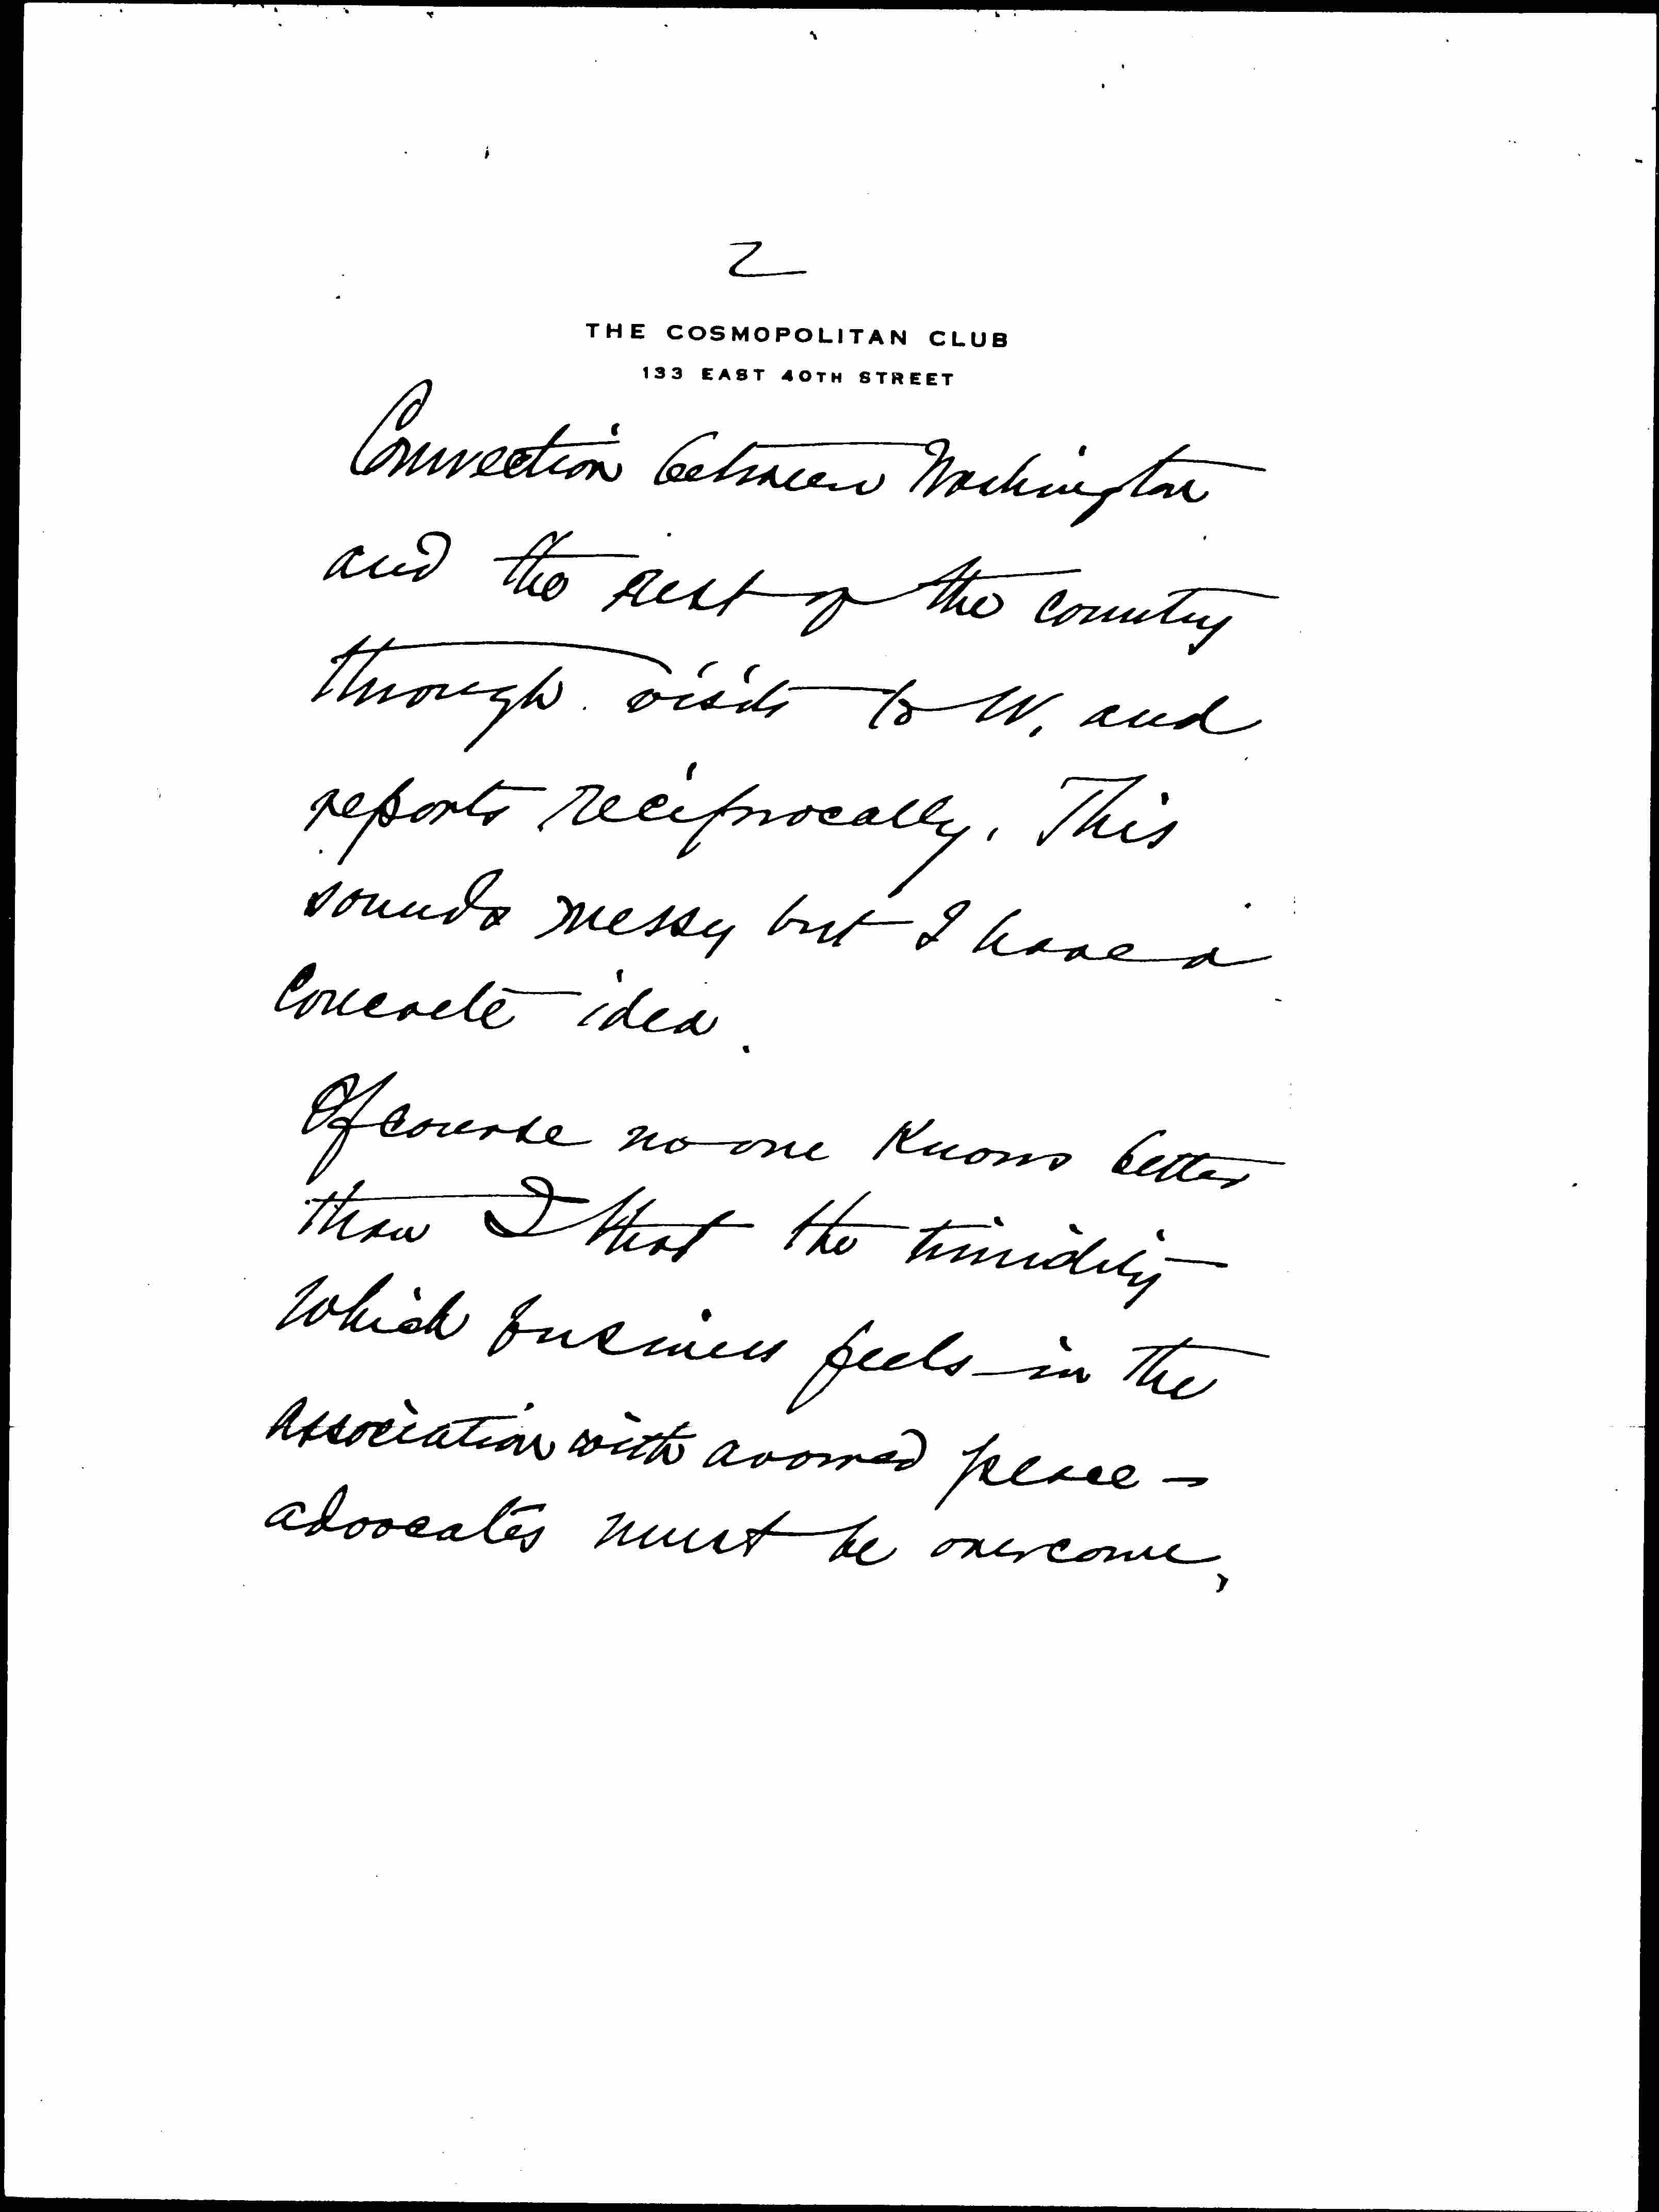 2
THE COSMOPOLITAN CLUB
133 EAST 40TH STREET
Connection between Washington
and the rest of the country
through visits to W. and
reports reciprocally. This
sounds messy but I have a
concrete idea.
Of course no one knows better
than I that the timidity
which business feels in the
association with avowed peace -
advocates must be overcome,